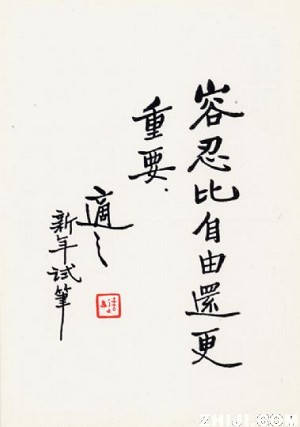 容忍比自由還更
重要.
適之
新年試筆
ZHIJI.COM